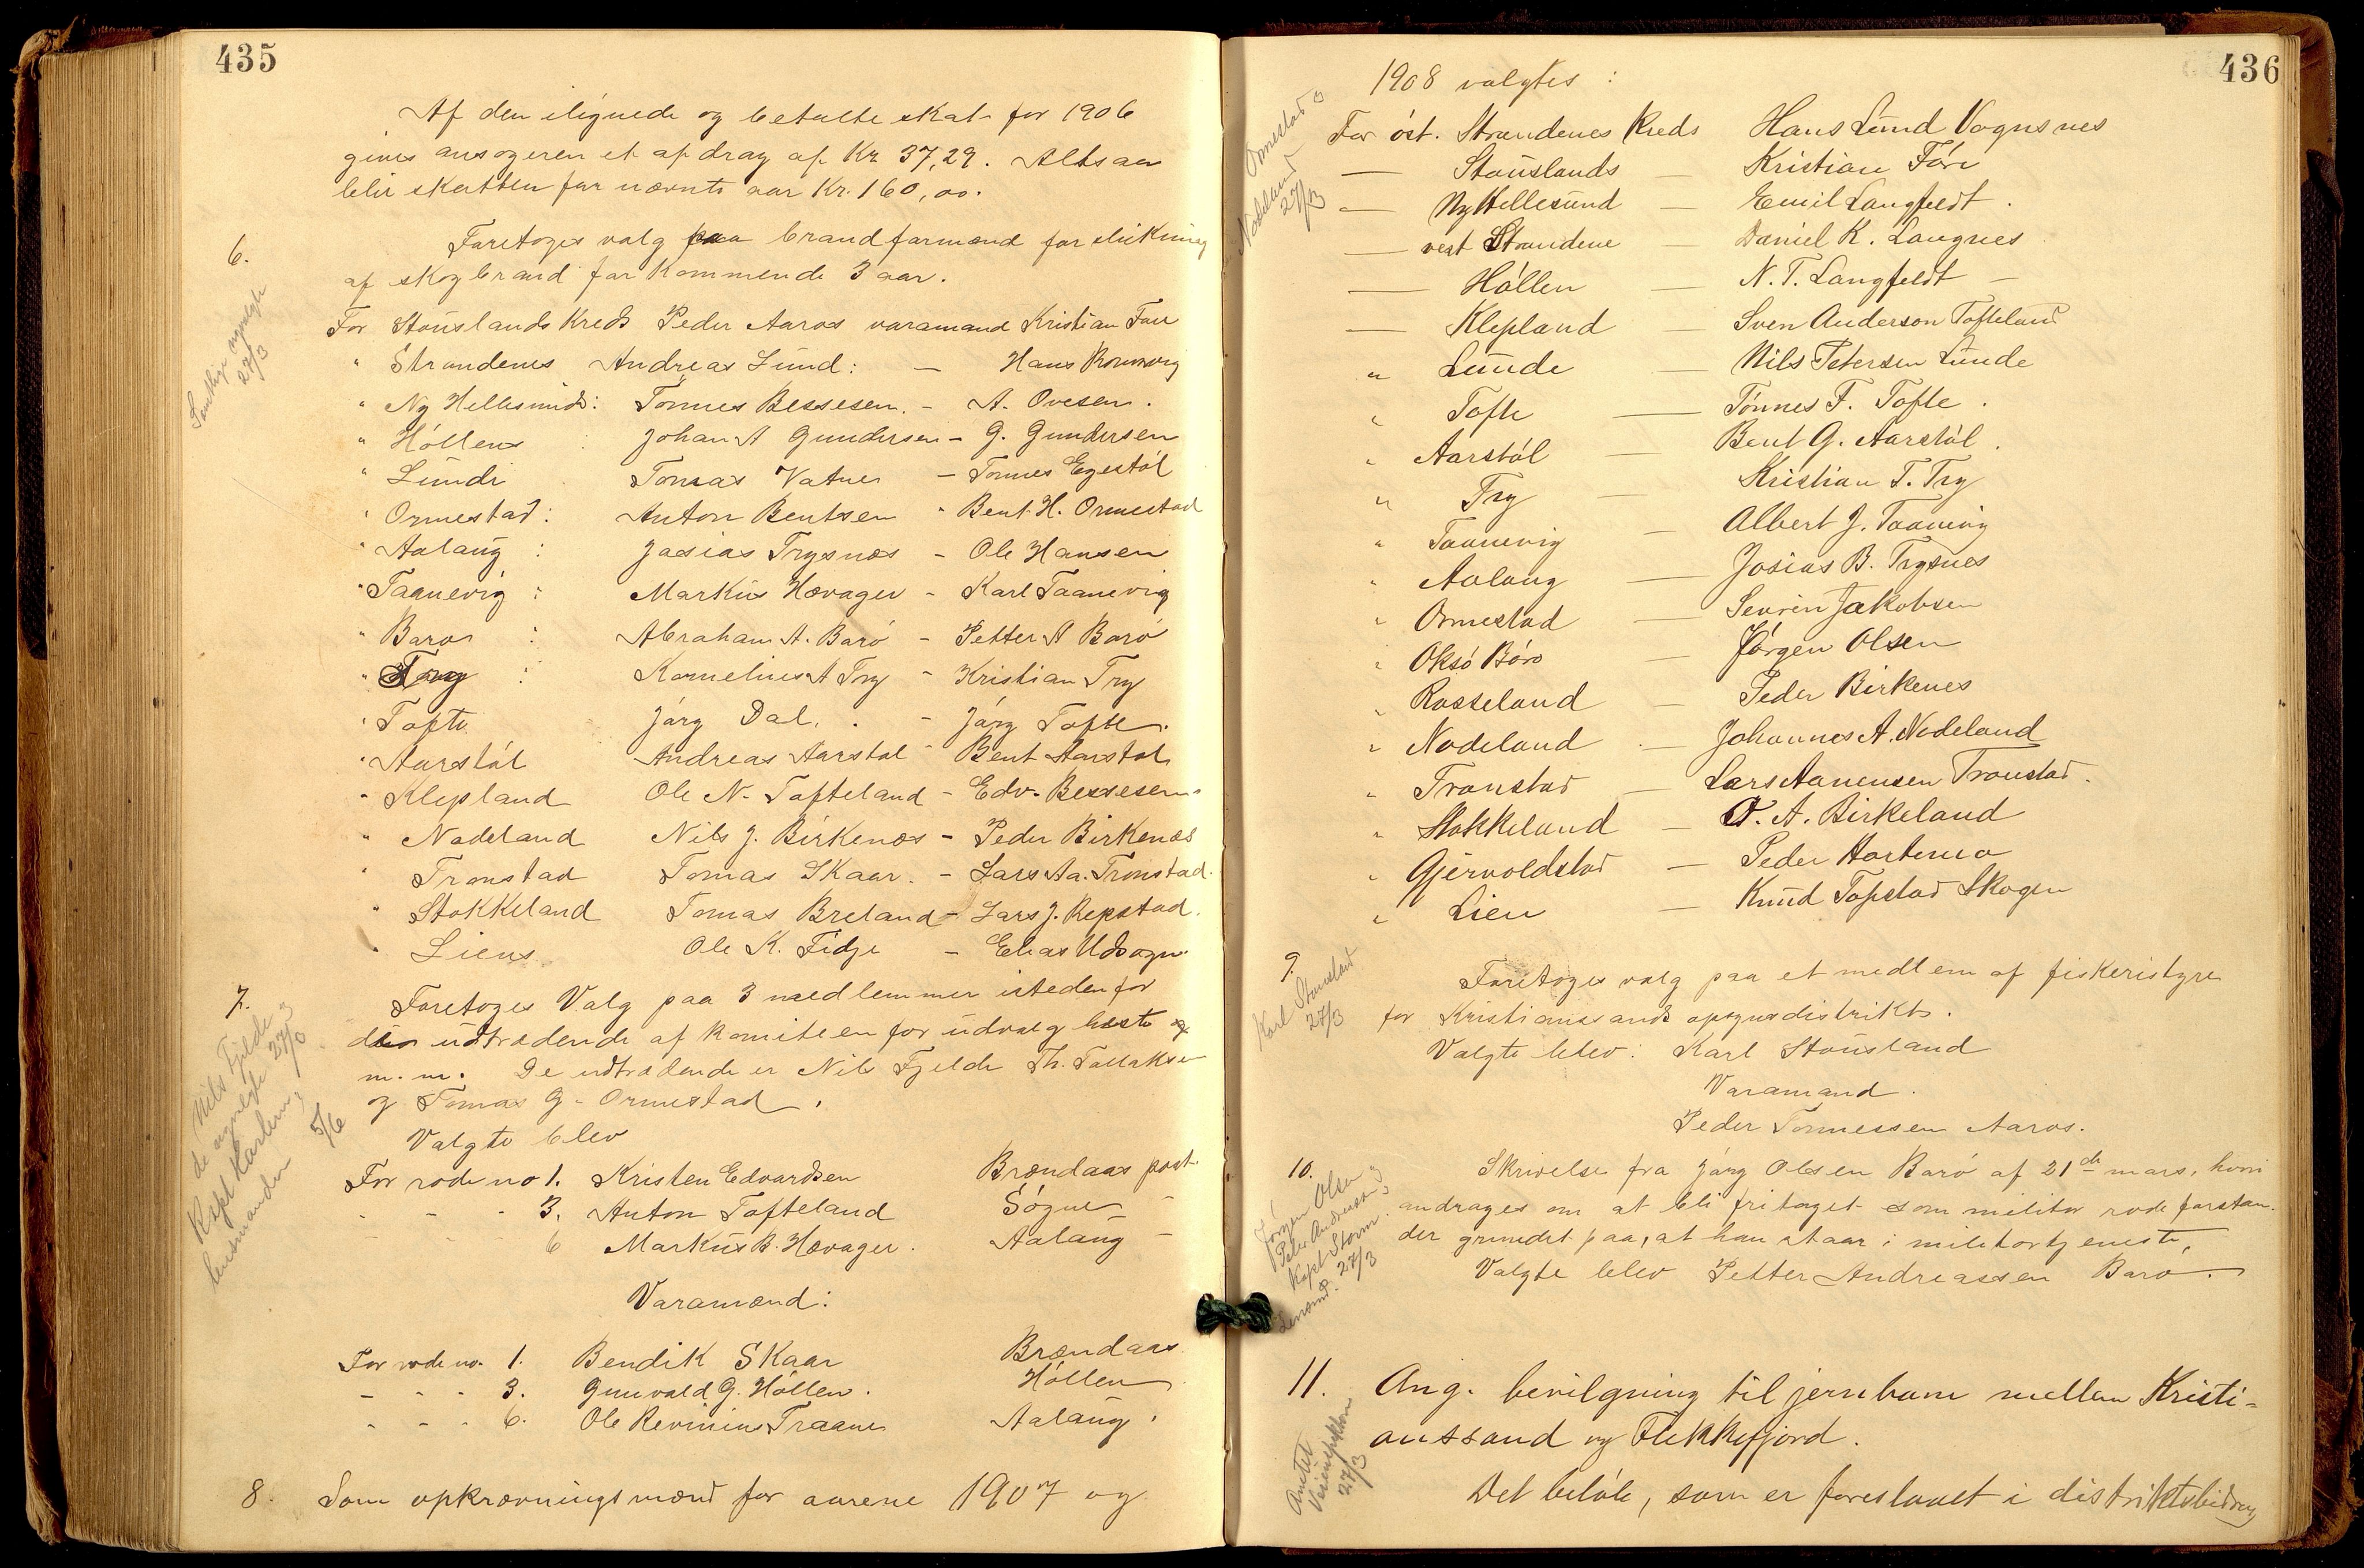 435
Af den ilignede og betalte skat for 1906
gives ansøgeren et afdrag af Kr 37,29. Altsaa
blir skatten for nævnte aar Kr. 160,00.
6.
Samtlige
27/3
Foretoges valg paa brandformænd for slukning
af skogbrand for kommende 3 aar.
For Stauslands Kreds Peder Aaros varamand Kristian Fare
" Strandenes Andreas Lund: — Hans
" Ny Hellesunds: Tønnes Bessesen. - A. Ovesen.
" Höllens : Johan A Gundersen - G. Gundersen
" Lunde Tomas Vatne - Tønnes Egestöl
" Ormestad: Anton Bentsen " Bent H. Ormestad
" Aalaug : Josias Trysnæs - Ole Hansen
" Taanevig : Markus Hævager - Karl Taanevig
" Baroe : Abraham A. Barö - Petter A Barö
" Try : Kornelius A Try - Kristian Try
" Tofte Jörg Dal. . - Jörg Tofte.
" Aarstöl Andreas Aarstøl - Bent Aarstöl
" Klepland Ole N. Tofteland - Edv. Bessesen.
" Nodeland Nils J. Birkenæs - Peder Birkenæs
" Tronstad Tomas Skaar. - Lars Aa. Tronstad.
" Stokkeland Tomas Breland - Lars J. Repstad.
" Liens Ole K. Fidje - Elias
7.
Nils Fjelde
27/3
Kapt Karlsen
lensmanden
5/6
Foretoges Valg paa 3 medlemmer istedenfor
de udtrædende af komiteen for udvalg heste og
m.m. De udtrædende er Nils Fjelde Th. Tallaksen
og Tomas G. Ormestad.
Valgte blev
For rode no 1. Kristen Edvardsen Brændaas post.
- - - 3. Anton Tofteland Søgne -
- - - 6 Markus B. Hævager. Aalaug -
Varamænd:
For rode no. 1. Bendik Skaar Brændaas.
- - - 3. Gunvald G. Höllen. Höllen
- - - 6. Ole Traanes Aalaug.
8. Som opkrævningsmænd for aarene 1907 og
436
1908 valgtes :
Ormestad
Nodeland
27/3
For öst. Strandenes Kreds Hans Lund Vognsnes
— Stauslands — Kristian Fare
— Ny Hellesund — Emil Langfeldt.
— vest Strandene Daniel K. Langnes
— Höllen — N. T. Langfeldt -
— Klepland — Sven Anderson Tofteland
" Lunde — Nils Petersen Lunde
" Tofte — Tönnes F. Tofte.
" Aarstöl — Bent G. Aarstöl.
" Try — Kristian T. Try
" Taanevig — Albert J. Taanevig
" Aalaug — Josias B. Trysnes
" Ormestad — Severin Jakobsen
" Oksö Börö — Jörgen Olsen
" Rosseland — Peder Birkenes
" Nodeland — Johannes A. Nodeland
" Tronstad — Lars Aanensen Tronstad.
" Stokkeland — A. Birkeland
" Gjervoldstad — Peder Hortemo
" Lien — Knud Topstad Skogen
9.
Karl Stausland
27/3
Foretoges valg paa et medlem af fiskeristyre
for Kristianssands opsynsdistrikt.
Valgte blev: Karl Stausland
Varamand.
Peder Tønnessen Aaros.
10.
Jörgen Olsen
Peter Andreassen
Kapt Storm
Lensmd. 27/3
Skrivelse fra Jörg Olsen Barö af 21de mars, hvori
andrages om at bli fritaget som militær rodeforstan-
der grundet paa, at han staar i militærtjeneste,
Valgte blev Petter Andreassen Barø.
11. Ang. bevilgning til jernbane mellem Kristi-
anssand og Flekkefjord.
Amtet
27/3
Det beløb, som er foreslaaet i distriktsbidrag